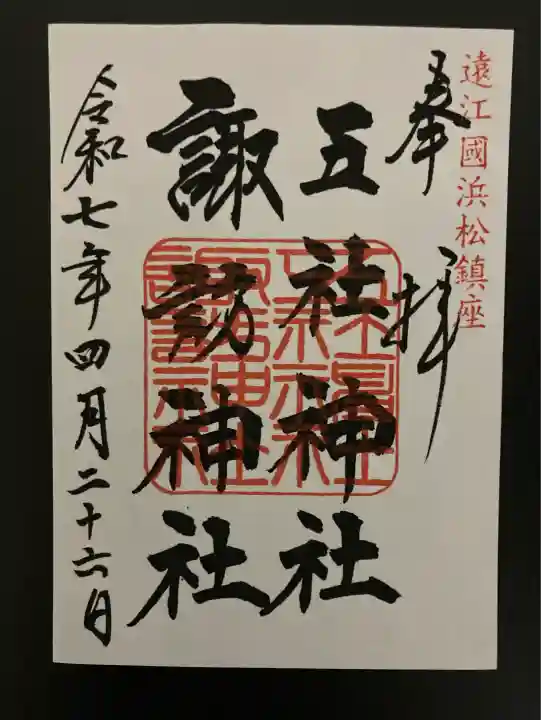 遠江國浜松鎮座
奉拝
五社神社
諏訪神社
令和七年四月二十六日